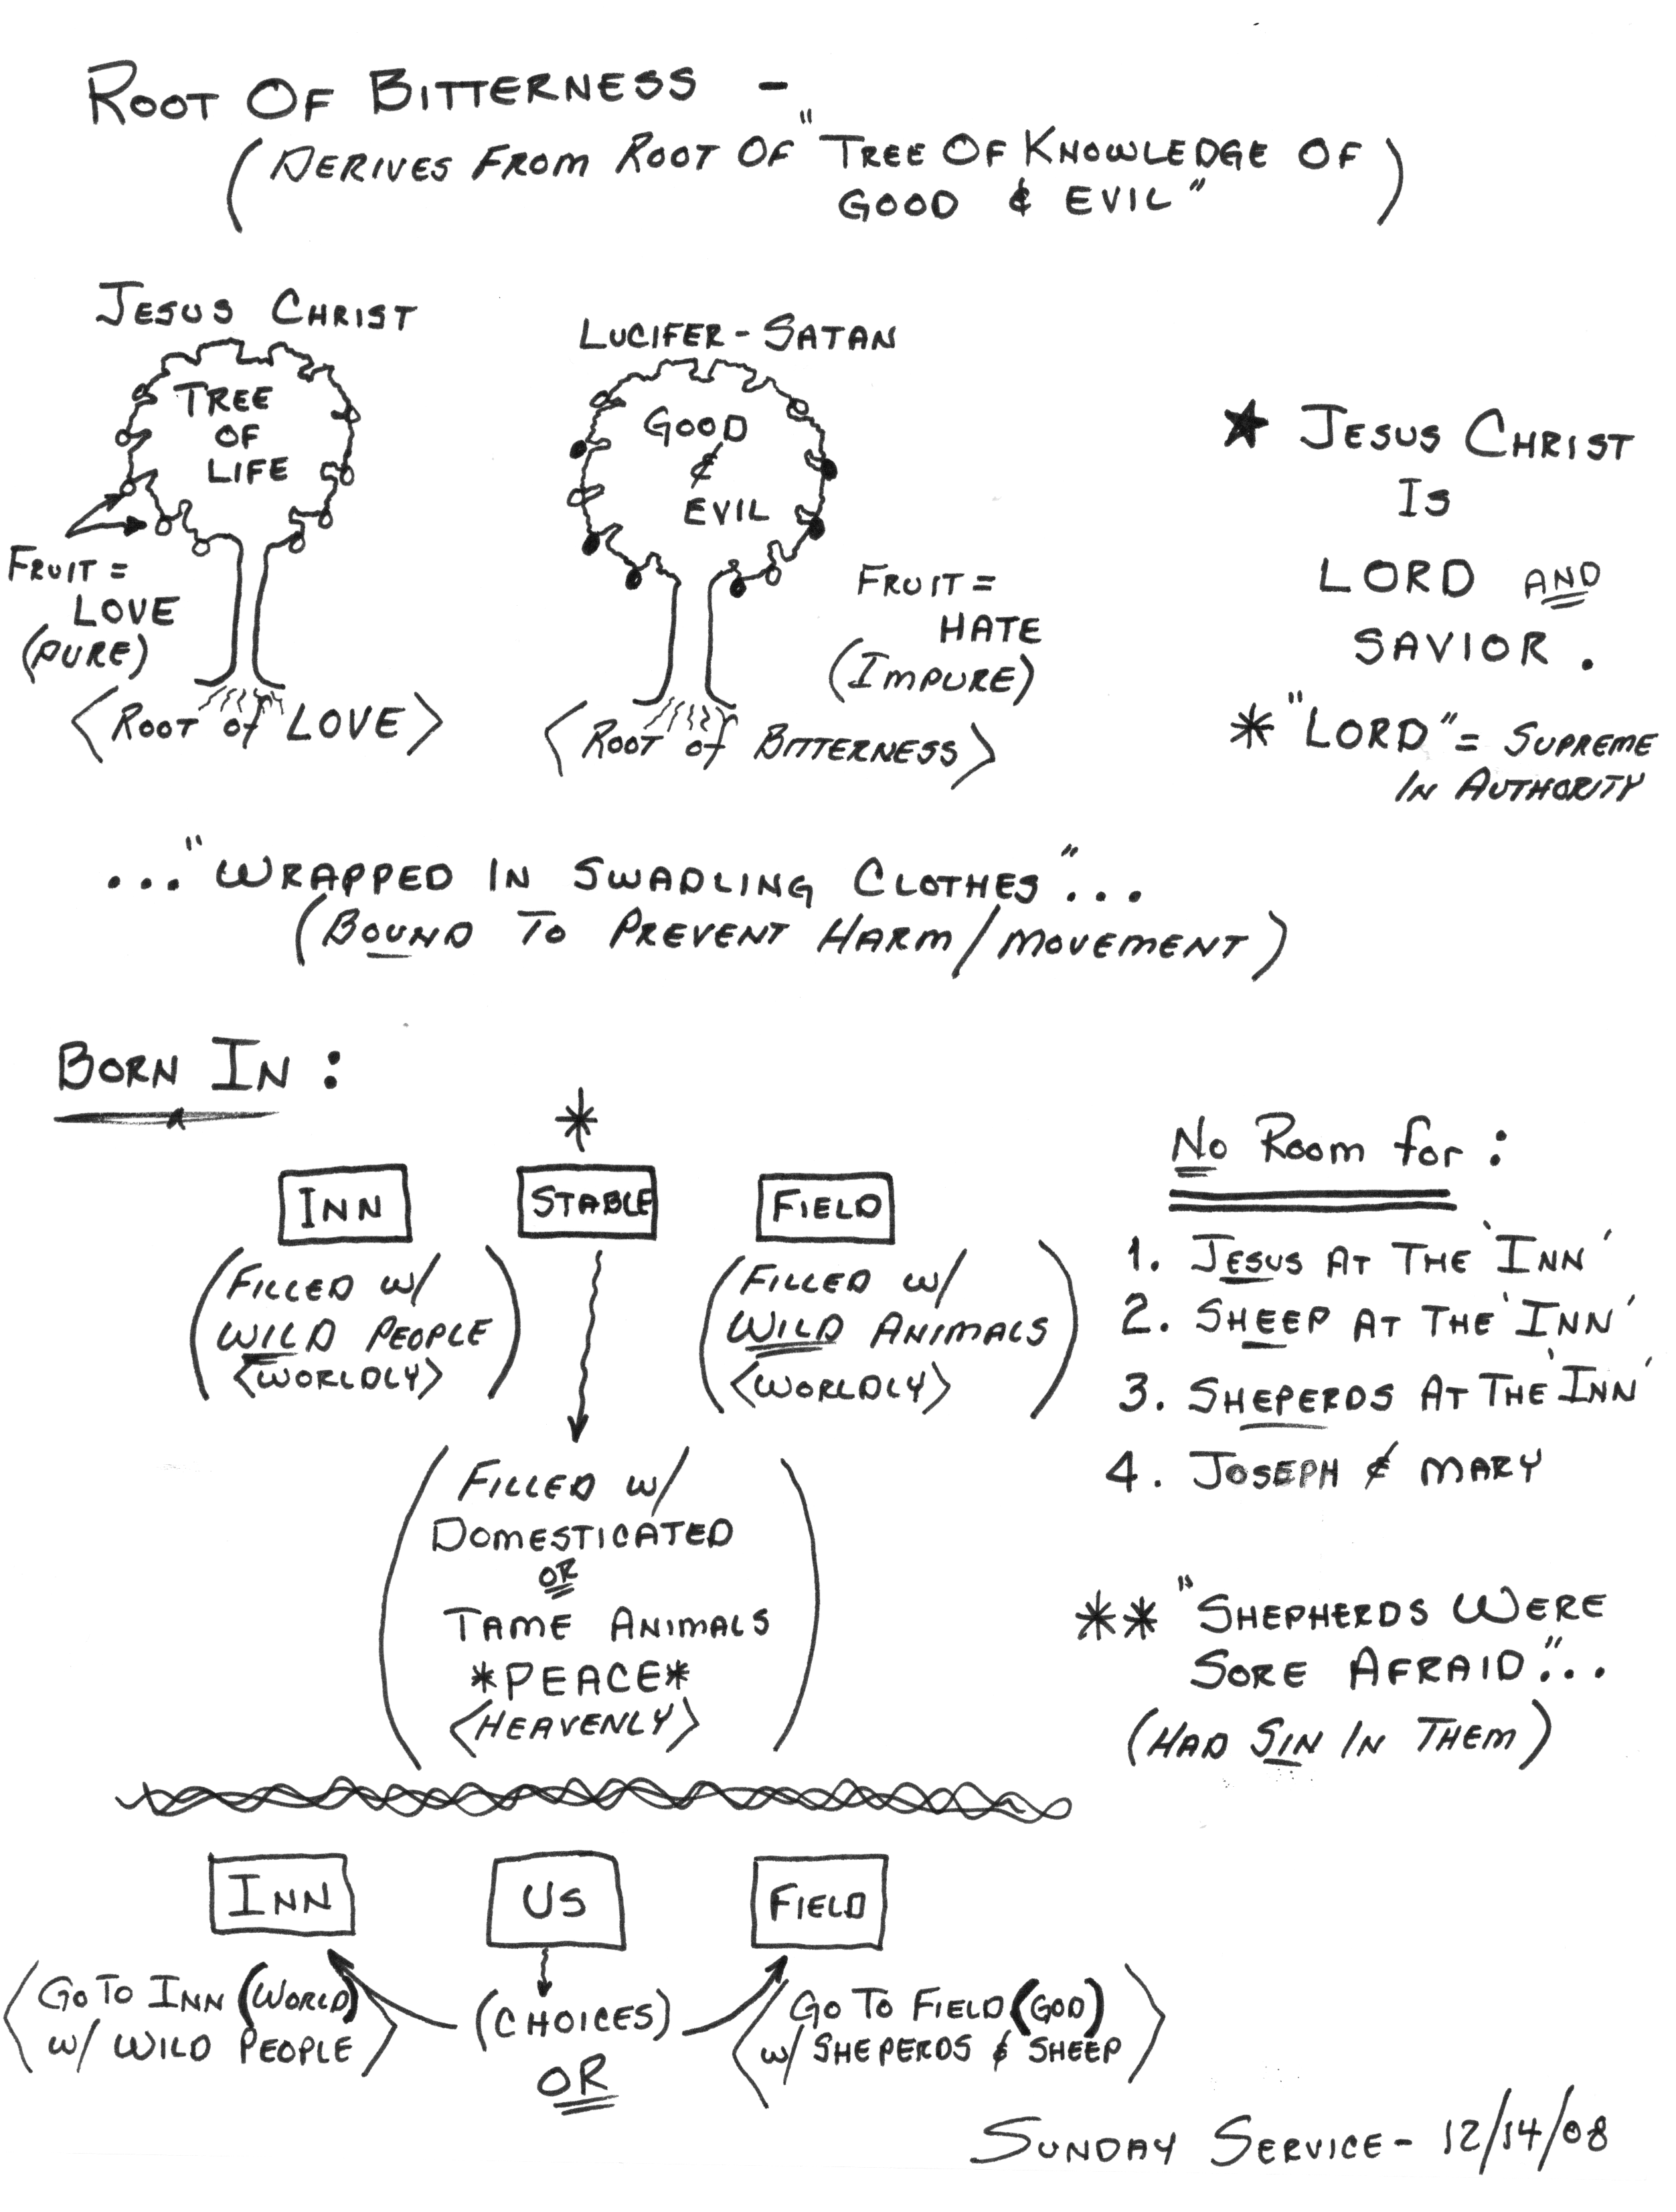 ROOT OF BITTERNESS -
(DERIVES FROM ROOT OF "TREE OF KNOWLEDGE OF
GOOD & EVIL")
JESUS CHRIST
TREE
OF
LIFE
FRUIT =
LOVE
(PURE)
<ROOT of LOVE>
LUCIFER - SATAN
GOOD
&
EVIL
FRUIT =
HATE
(IMPURE)
<ROOT of BITTERNESS>
★ JESUS CHRIST
IS
LORD AND
SAVIOR.
* "LORD" = SUPREME
IN AUTHORITY
..."WRAPPED IN SWADLING CLOTHES"...
(BOUND TO PREVENT HARM/MOVEMENT)
BORN IN:
*
INN
(FILLED w/
WILD PEOPLE
<WORLDLY>)
STABLE
FIELD
(FILLED w/
WILD ANIMALS
<WORLDLY>)
(FILLED w/
DOMESTICATED
OR
TAME ANIMALS
*PEACE*
<HEAVENLY>)
No ROOM for:
1. JESUS AT THE 'INN'
2. SHEEP AT THE 'INN'
3. SHEPERDS AT THE 'INN'
4. JOSEPH & MARY
** "SHEPHERDS WERE
SORE AFRAID"...
(HAD SIN IN THEM)
INN
US
FIELD
<GO TO INN (WORLD)
w/ WILD PEOPLE>
(CHOICES)
OR
<GO TO FIELD (GOD)
w/ SHEPERDS & SHEEP>
SUNDAY SERVICE - 12/14/08